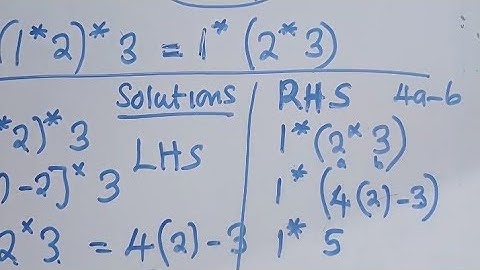 (1*2)*3 = 1*(2*3)
Solutions
RHS 4a-b
*2)*3
LHS
1*(2*3)
a b
)-2]*3
1*(4(2)-3)
2*3 = 4(2)-3
1*5